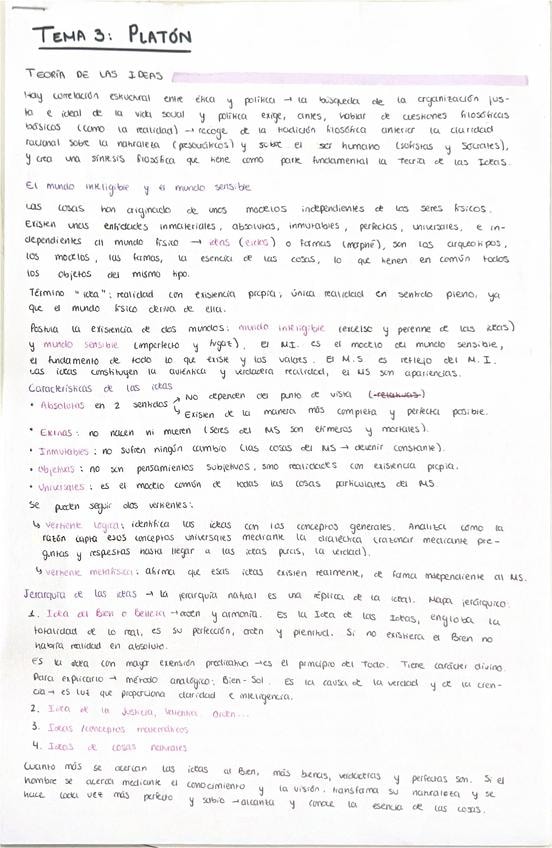 TEMA 3: PLATÓN
TEORÍA DE LAS IDEAS
Hay correlación estructural entre ética y política → la búsqueda de la organización jus-
ta e ideal de la vida social y política exige, antes, hablar de cuestiones filosóficas
básicas (como la realidad) → recoge de la tradición filosófica anterior la claridad
racional sobre la naturaleza (presocráticos) y sobre el ser humano (sofistas y Sócrates),
y crea una síntesis filosófica que tiene como parte fundamental la Teoría de las Ideas.
El mundo inteligible y el mundo sensible
Las cosas han originado de unos modelos independientes de los seres físicos.
Existen unas entidades inmateriales, absolutas, inmutables, perfectas, universales, e in-
dependientes al mundo físico → ideas (eidos) o formas (morphé), son los arquetipos,
los modelos, las formas, la esencia de las cosas, lo que tienen en común todos
los objetos del mismo tipo.
Término "idea": realidad con existencia propia; única realidad en sentido pleno, ya
que el mundo físico deriva de ella.
Postula la existencia de dos mundos: mundo inteligible (excelso y perenne de las ideas)
y mundo sensible (imperfecto y fugaz). El M.I. es el modelo del mundo sensible,
el fundamento de todo lo que existe y los valores. El M.S es reflejo del M.I.
Las ideas constituyen la auténtica y verdadera realidad, el MS son apariencias.
Características de las ideas
• Absolutas en 2 sentidos → No dependen del punto de vista (relativas)
Existen de la manera más completa y perfecta posible.
• Eternas: no nacen ni mueren (seres del MS son efímeros y mortales).
• Inmutables: no sufren ningún cambio (las cosas del MS → devenir constante).
• Objetivas: no son pensamientos subjetivos, sino realidades con existencia propia.
• Universales: es el modelo común de todas las cosas particulares del MS.
Se pueden seguir dos vertientes:
↳ vertiente lógica: identifica las ideas con los conceptos generales. Analiza cómo la
razón capta esos conceptos universales mediante la dialéctica (razonar mediante pre-
guntas y respuestas hasta llegar a las ideas puras, la verdad).
↳ vertiente metafísica: afirma que esas ideas existen realmente, de forma independiente al MS.
Jerarquía de las ideas → la jerarquía natural es una réplica de la ideal. Mapa jerárquico:
1. Idea del Bien o Belleza → orden y armonía. Es la Idea de las Ideas, engloba la
totalidad de lo real, es su perfección, orden y plenitud. Si no existiera el Bien no
habría realidad en absoluto.
Es la idea con mayor extensión predicativa → es el principio del Todo. Tiene carácter divino.
Para explicarlo → método analógico: Bien-Sol. Es la causa de la verdad y de la cien-
cia → es luz que proporciona claridad e inteligencia.
2. Idea de la Justicia, Orden...
3. Ideas/conceptos matemáticos
4. Ideas de cosas naturales
Cuanto más se acercan las ideas al Bien, más bellas, verdaderas y perfectas son. Si el
hombre se acerca mediante el conocimiento y la visión, transforma su naturaleza y se
hace cada vez más perfecto y sabio → alcanza y conoce la esencia de las cosas.